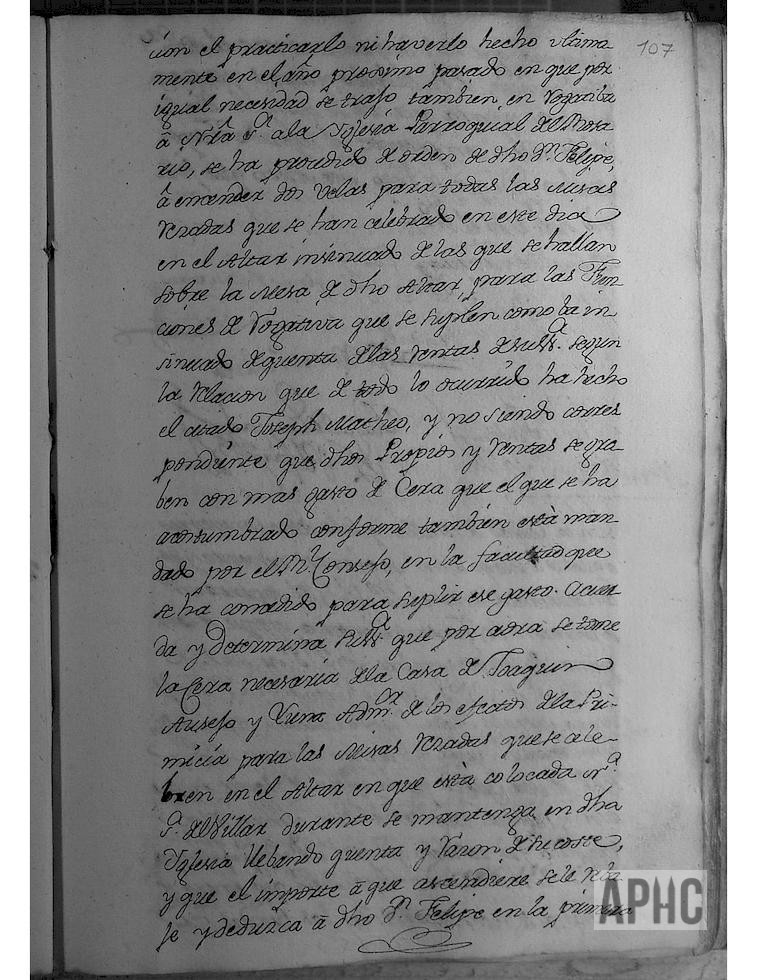 107
cion el practicarlo ni haverlo hecho ultima
mente en el año proximo pasado en que por
igual necesidad se trajo tambien, en Rogativa
â Nrâ Sª. a la Yglesia Parroquial del Rosa
rio, se ha procedido de orden de dho Dn. Felipe,
â encender dos Velas para todas las Misas
Rezadas que se han celebrado en este dia
en el Altar insinuado de las que se hallan
sobre la Mesa de dho Altar, para las Fun
ciones de Rogativa que se suplen como la in
sinuado de quenta de las Rentas de suSSª. segun
la Relacion que de todo lo ocurrido ha hecho
el citado Joseph Matheo, y no siendo corres
pondiente que dhos Propios y Rentas se gra
ben con mas gasto de Cera que el que se ha
acostumbrado conforme tambien està man
dado por el Rl. Consejo, en la facultad que
se ha concedido para suplir ese gasto. Acuer
da y determina suSSª. que por aora se tome
la Cera necesaria de la Casa de Joaquin
Ausejo y Admor. de los efectos de la Pri-
micia para las Misas Rezadas que se cele-
bren en el Altar en que està colocada Nrª.
Sª. del Villar durante se mantenga en dha
Yglesia llebando quenta y razon de su coste,
y que el importe â que ascendiere se le reba
je y deduzca â dho Dn. Felipe en la primera
APHC